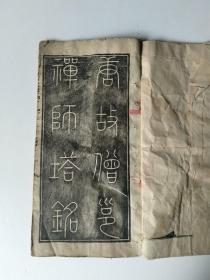 唐故僧邕
禪師塔銘